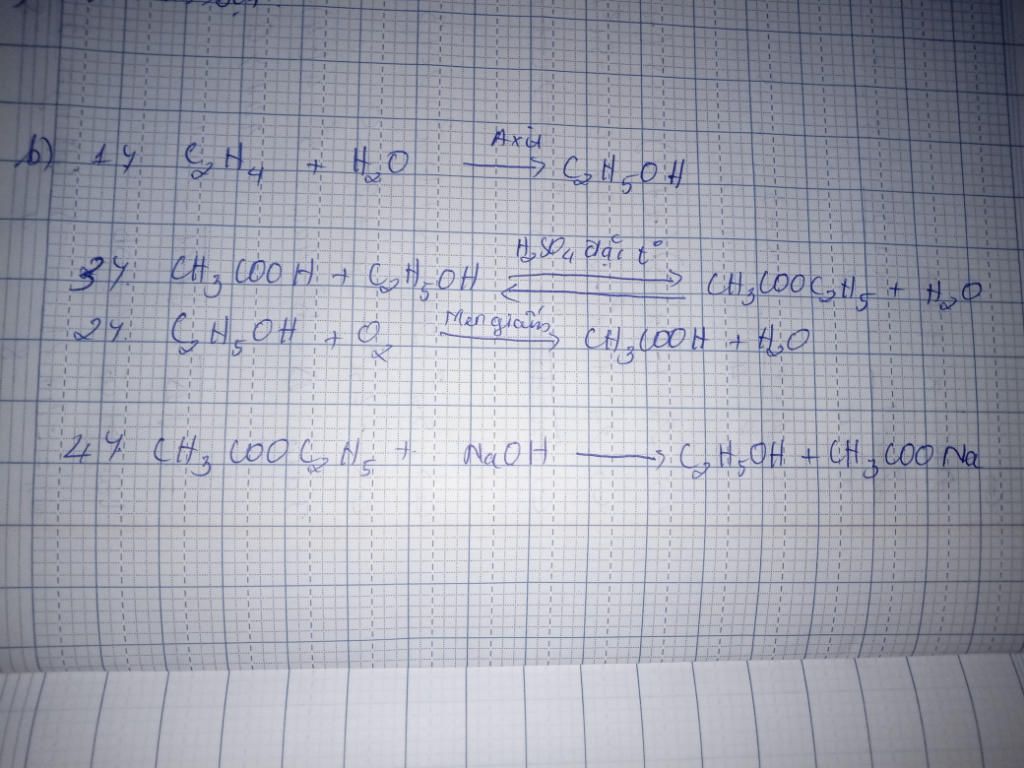 b) 1, C₂H₄ + H₂O Axit → C₂H₅OH
3, CH₃COOH + C₂H₅OH H₂SO₄ đặc t° ⇌ CH₃COOC₂H₅ + H₂O
2, C₂H₅OH + O₂ Men giấm → CH₃COOH + H₂O
4, CH₃COOC₂H₅ + NaOH → C₂H₅OH + CH₃COONa